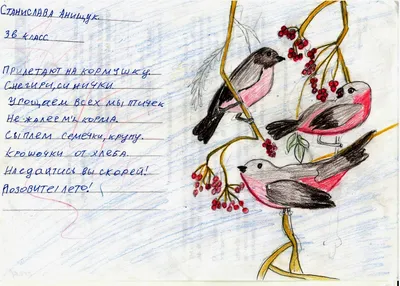 Станислава Анищук
3б класс
Прилетают на кормушку
Снегири, синички.
Угощаем всех мы птичек
Не жалеем корма.
Сыплем семечки, крупу.
Крошочки от хлеба.
Наедайтись вы скорей!
Позовите лето!